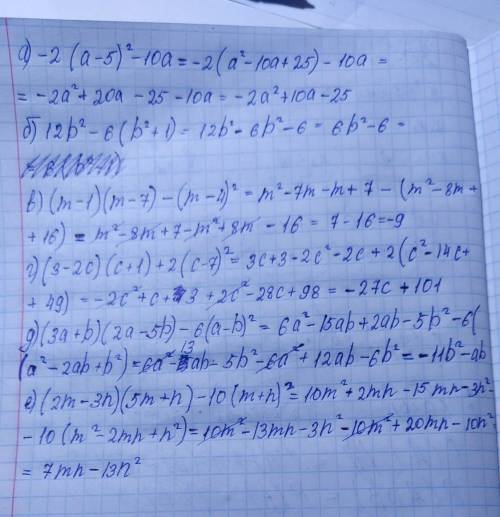 а) -2 (a-5)² - 10a = -2(a² - 10a + 25) - 10a =
= -2a² + 20a - 25 - 10a = -2a² + 10a - 25
б) 12b² - 6(b² + 1) = 12b² - 6b² - 6 = 6b² - 6 =
в) (m-1)(m-7) - (m-4)² = m² - 7m - m + 7 - (m² - 8m +
+ 16) = m² - 8m + 7 - m² + 8m - 16 = 7 - 16 = -9
г) (3-2c)(c+1) + 2(c-7)² = 3c + 3 - 2c² - 2c + 2(c² - 14c +
+ 49) = -2c² + c + 3 + 2c² - 28c + 98 = -27c + 101
д) (3a+b)(2a-5b) - 6(a-b)² = 6a² - 15ab + 2ab - 5b² - 6(
(a² - 2ab + b²) = 6a² - 13ab - 5b² - 6a² + 12ab - 6b² = -11b² - ab
е) (2m-3n)(5m+n) - 10(m+n)² = 10m² + 2mn - 15mn - 3n² -
- 10(m² - 2mn + n²) = 10m² - 13mn - 3n² - 10m² + 20mn - 10n² =
= 7mn - 13n²